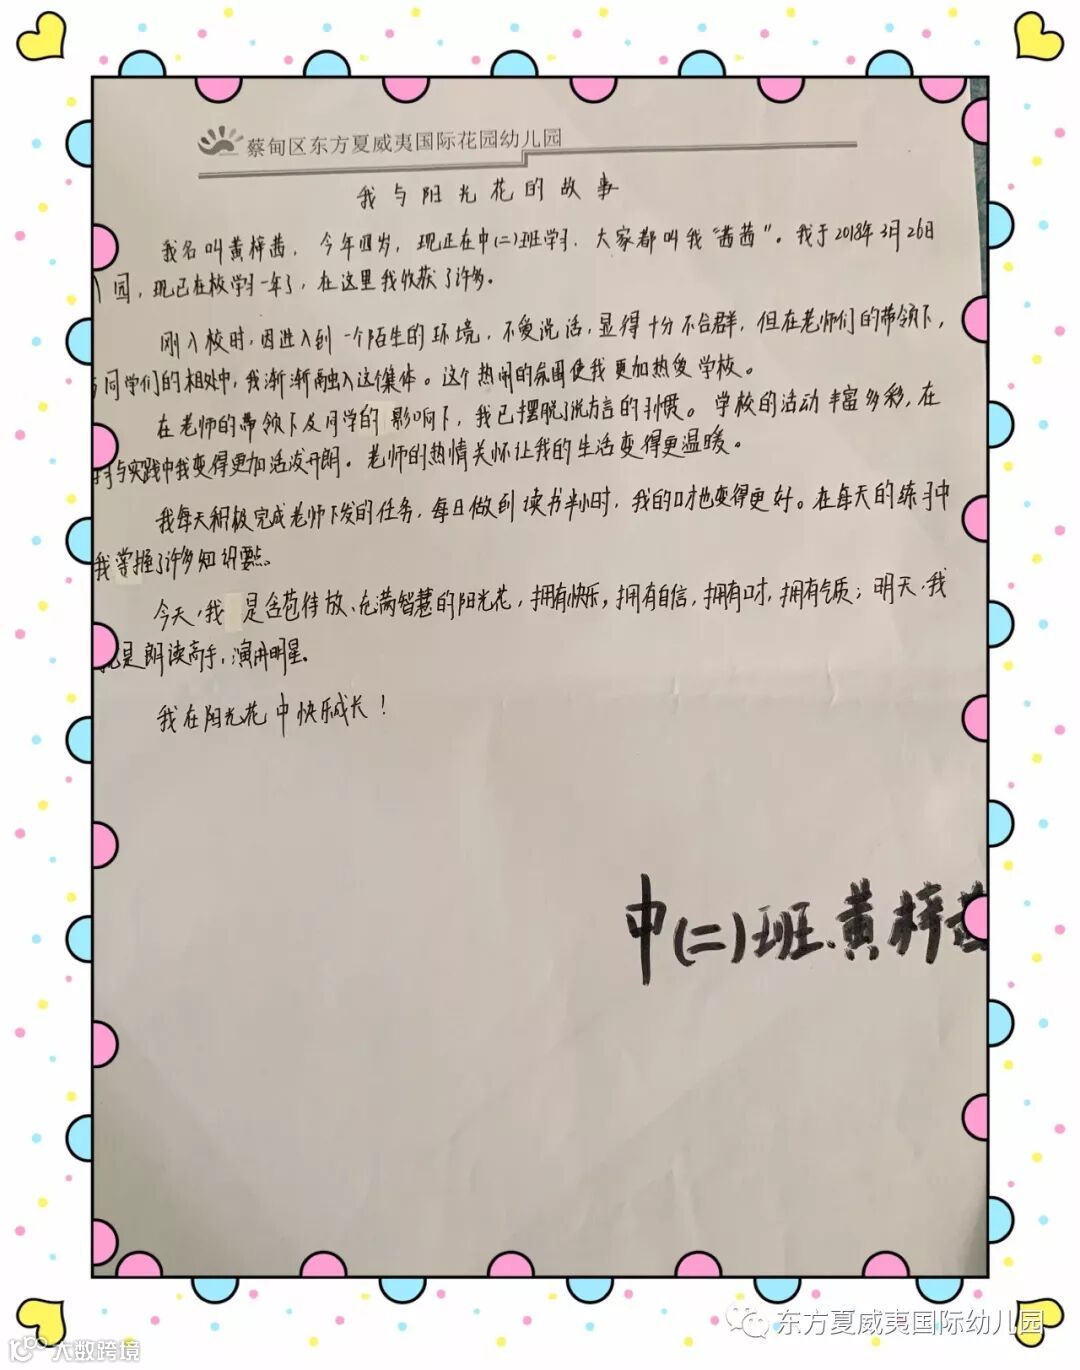 蔡甸区东方夏威夷国际花园幼儿园
我与阳光花的故事
我名叫黄梓茜，今年四岁，现正在中(二)班学习，大家都叫我“茜茜”。我于2018年3月26日
入园，现已在校学习一年了，在这里我收获了许多。
刚入校时，因进入到一个陌生的环境，不爱说话，显得十分不合群，但在老师们的带领下，
与同学们的相处中，我渐渐融入这个集体。这个热闹的氛围使我更加热爱学校。
在老师的带领下及同学的影响下，我已摆脱了说方言的习惯。学校的活动丰富多彩，在
与实践中我变得更加活泼开朗。老师的热情关怀让我的生活变得更温暖。
我每天积极完成老师下发的任务，每日做到读书半小时，我的口才也变得更好。在每天的练习中
我掌握了许多知识要点。
今天，我是含苞待放、充满智慧的阳光花，拥有快乐，拥有自信，拥有口才，拥有气质；明天，我
就是朗读高手，演讲明星。
我在阳光花中快乐成长！
中(二)班.黄梓茜
东方夏威夷国际幼儿园
大数跨境